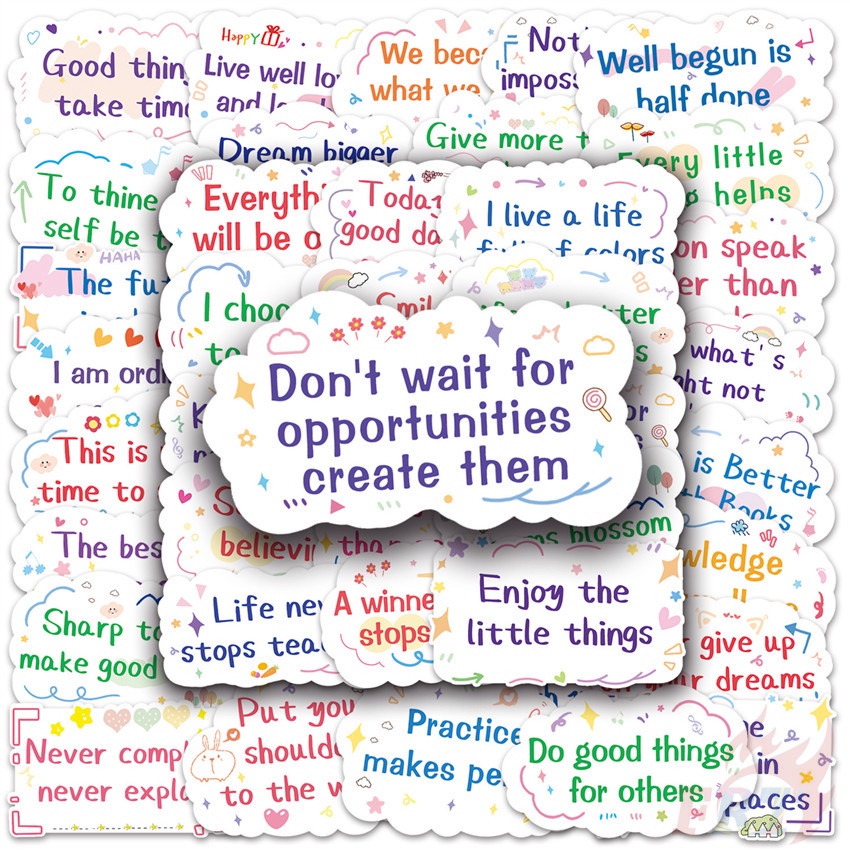 Good thin
take time
Happy
Live well lo
We bec
what we
Not
imposs
Well begun is
half done
Dream bigger
Give more t
Every little
helps
To thine
self be t
Everythi
will be o
Today
good da
I live a life
full of colors
on speak
er than
HAHA
The fu
I choo
to
Smil
tter
what's
ht not
I am ord
Don't wait for
opportunities
create them
This is
time to
is Better
Books
The bes
believi
tha
ms blossom
wledge
Sharp to
make good
Life nev
stops teac
A winne
stops
Enjoy the
little things
r give up
on your dreams
Never compl
never expla
Put you
shoulde
to the w
Practice
makes pe
Do good things
for others
he
in
places